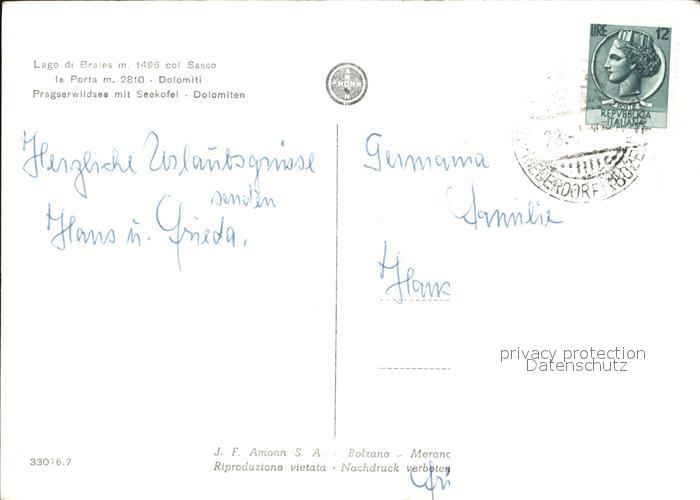 Lago di Braies m. 1496 col Sasso
la Porta m. 2810 - Dolomiti
Pragserwildsee mit Seekofel - Dolomiten
LIRE 12
POSTE
REPVBBLICA
ITALIANA
Herzliche Urlaubsgrüsse
senden
Hans u. Frieda.
Germania
Familie
Hans
privacy protection
Datenschutz
J. F. Amonn S. A. - Bolzano - Meranc
Riproduzione vietata - Nachdruck verboten
33076.7